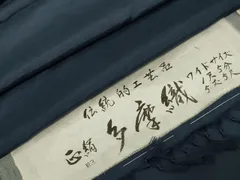 伝統的工芸品
多摩織
正絹
ワイドサイズ